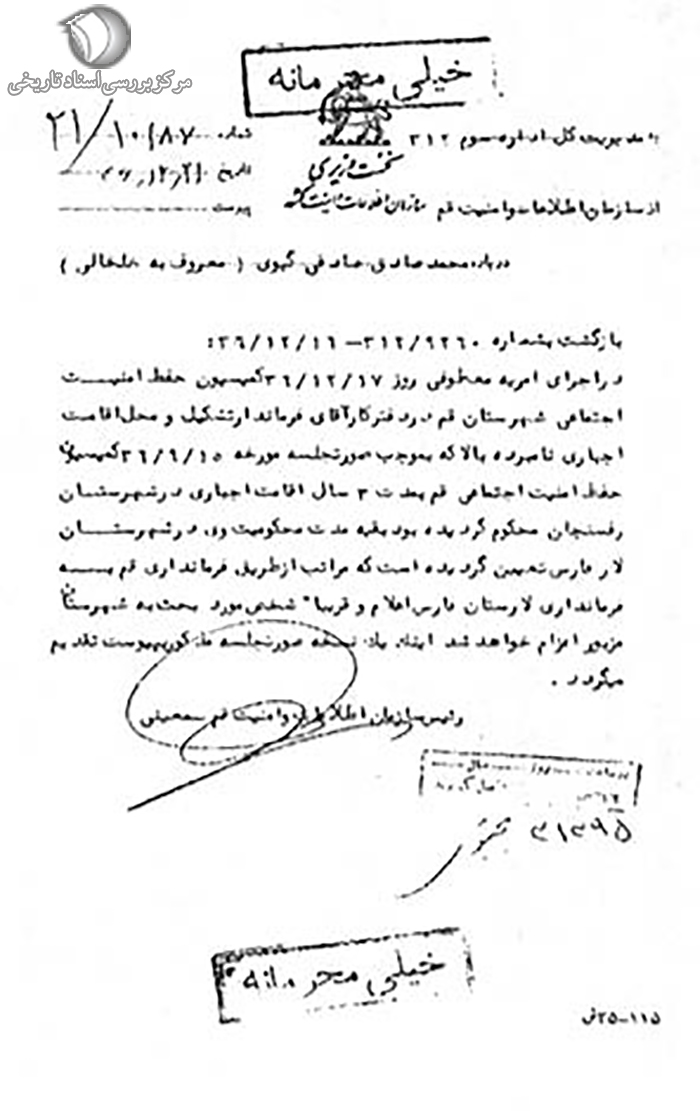 مرکز بررسی اسناد تاریخی
خیلی محرمانه
به مدیریت کل اداره سوم ۳۱۲
نخست وزیری
شماره ۲۱/۱۰۶۸۰۷
از سازمان اطلاعات و امنیت قم
سازمان اطلاعات و امنیت کشور
تاریخ
پیوست
درباره محمد صادق صادقی گیوی (معروف به خلخالی)
بازگشت بشماره ۳۱۲/۹۲۶۰ – ۳۶/۱۲/۱۶:
در اجرای امریه معطوفی روز ۳۶/۱۲/۱۷ کمیسیون حفظ امنیت
اجتماعی شهرستان قم در دفتر کار آقای فرماندار تشکیل و محل اقامت
اجباری نامبرده بالا که بموجب صورتجلسه مورخه ۳۶/۹/۱۵ کمیسیون
حفظ امنیت اجتماعی قم بمدت ۳ سال اقامت اجباری در شهرستان
رفسنجان محکوم گردیده بود بقیه مدت محکومیت وی در شهرستان
لار فارس تعیین گردیده است که مراتب از طریق فرمانداری قم به
فرمانداری لارستان فارس اعلام و قریبا" شخص مورد بحث به شهرستان
مزبور اعزام خواهد شد اینک یک نسخه صورتجلسه مذکور بپیوست تقدیم
میگردد.
رئیس سازمان اطلاعات و امنیت قم معینی
۳۱۳۹۵
خیلی محرمانه
۱۱۵–۲۵ف